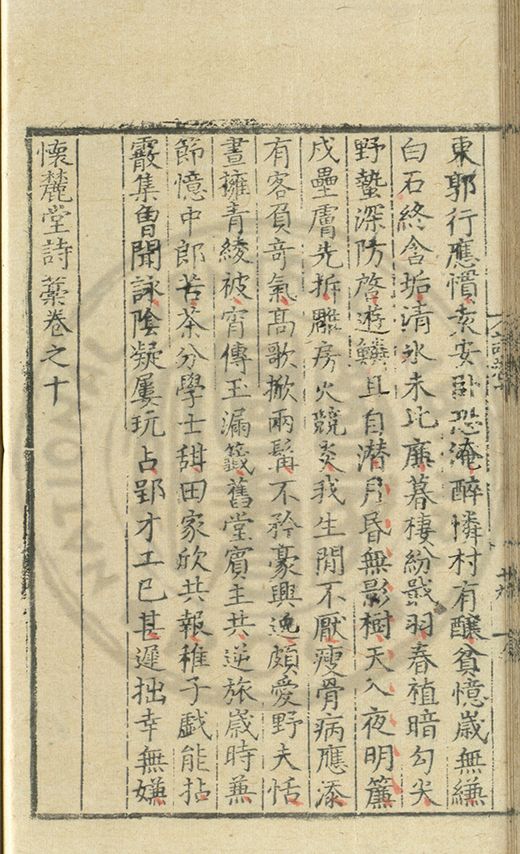 東郭行應慣袁安卧恐淹醉憐村有釀貧憶歲無縑
白石終含垢清氷未比廉暮棲紛戢羽春植暗勾尖
野蟄深防啓遊鱗且自潛月昏無影樹天入夜明簾
戍壘膚先拆雕房火競炎我生閒不厭瘦骨病應添
有客負竒氣髙歌掀兩髯不矜豪興逸頗愛野夫恬
晝擁青綾被宵傳玉漏籖舊堂賓主共逆旅歲時兼
節憶中郎苦茶分學士甜田家欣共報稚子戲能拈
霰集曽聞詠陰凝屢玩占郢才工已甚遲拙幸無嫌
懷麓堂詩藁卷之十